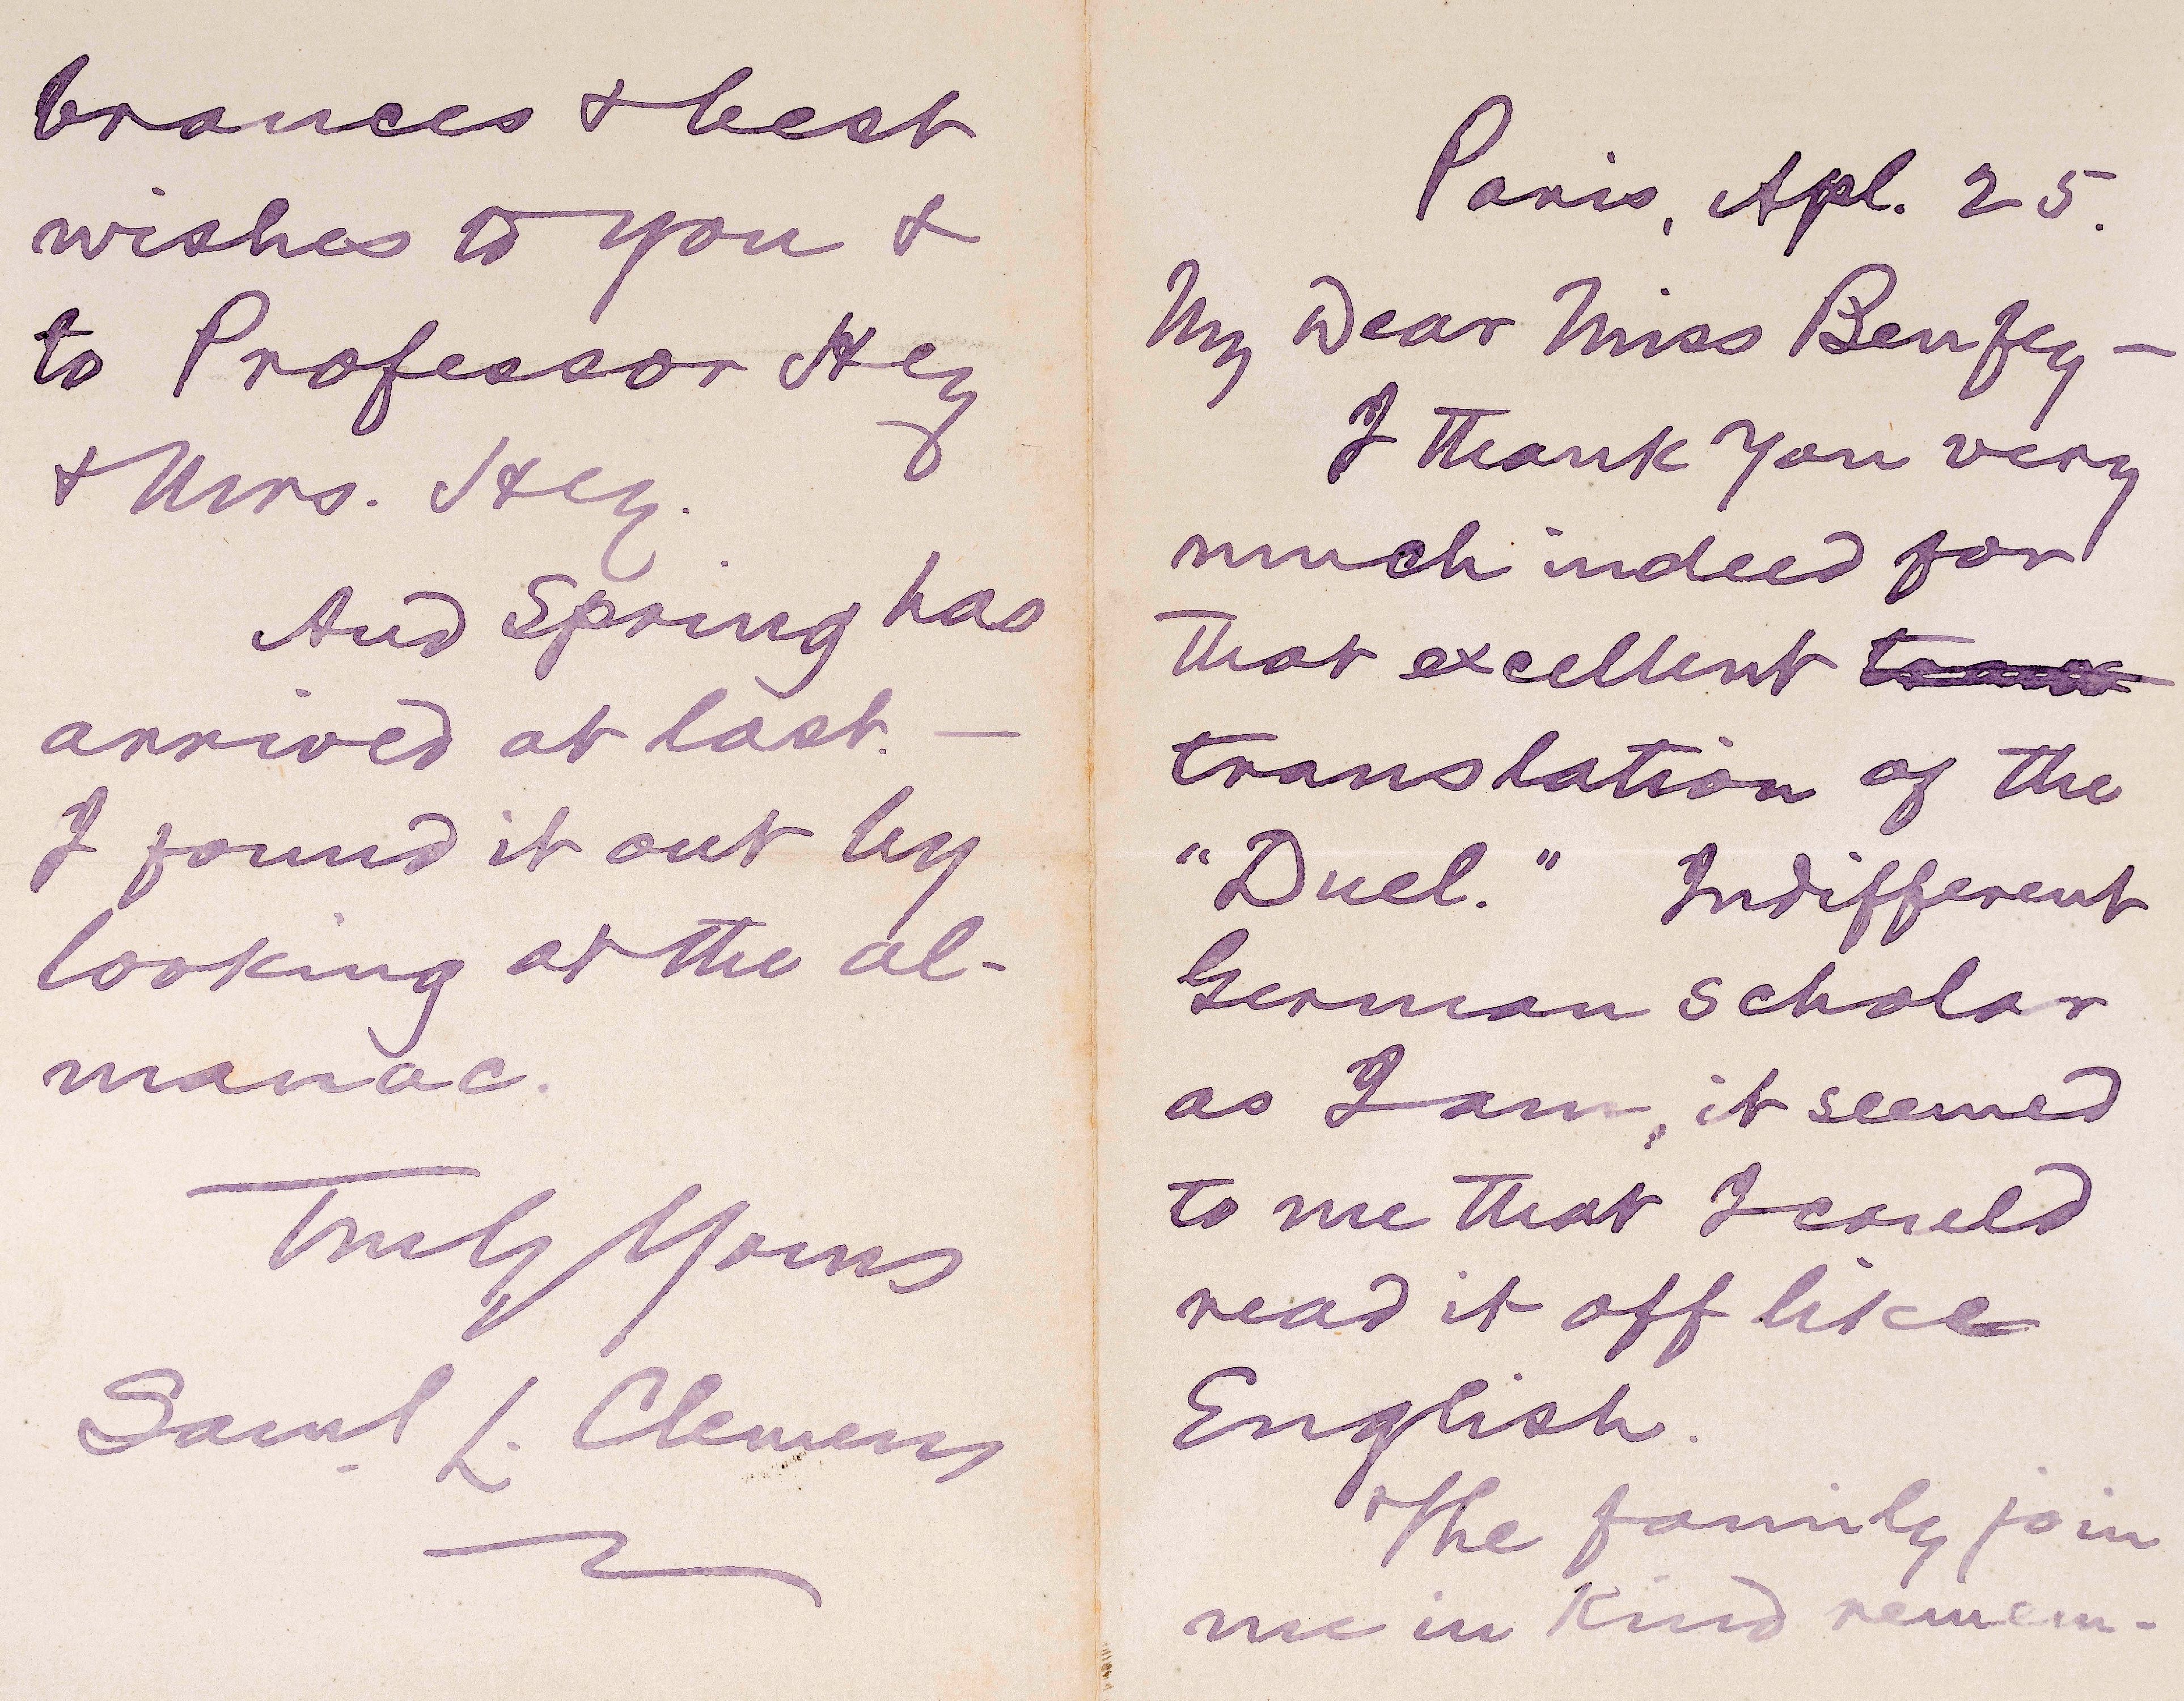 Paris, Apl. 25.
My Dear Miss Benfey—
I thank you very
much indeed for
that excellent
translation of the
"Duel." Indifferent
German scholar
as I am, it seemed
to me that I could
read it off like
English.
The family join
me in kind remem-
brances & best
wishes to you &
to Professor Hey
& Mrs. Hey.
And Spring has
arrived at last.—
I found it out by
looking at the al-
manac.
Truly Yours
Saml L. Clemens